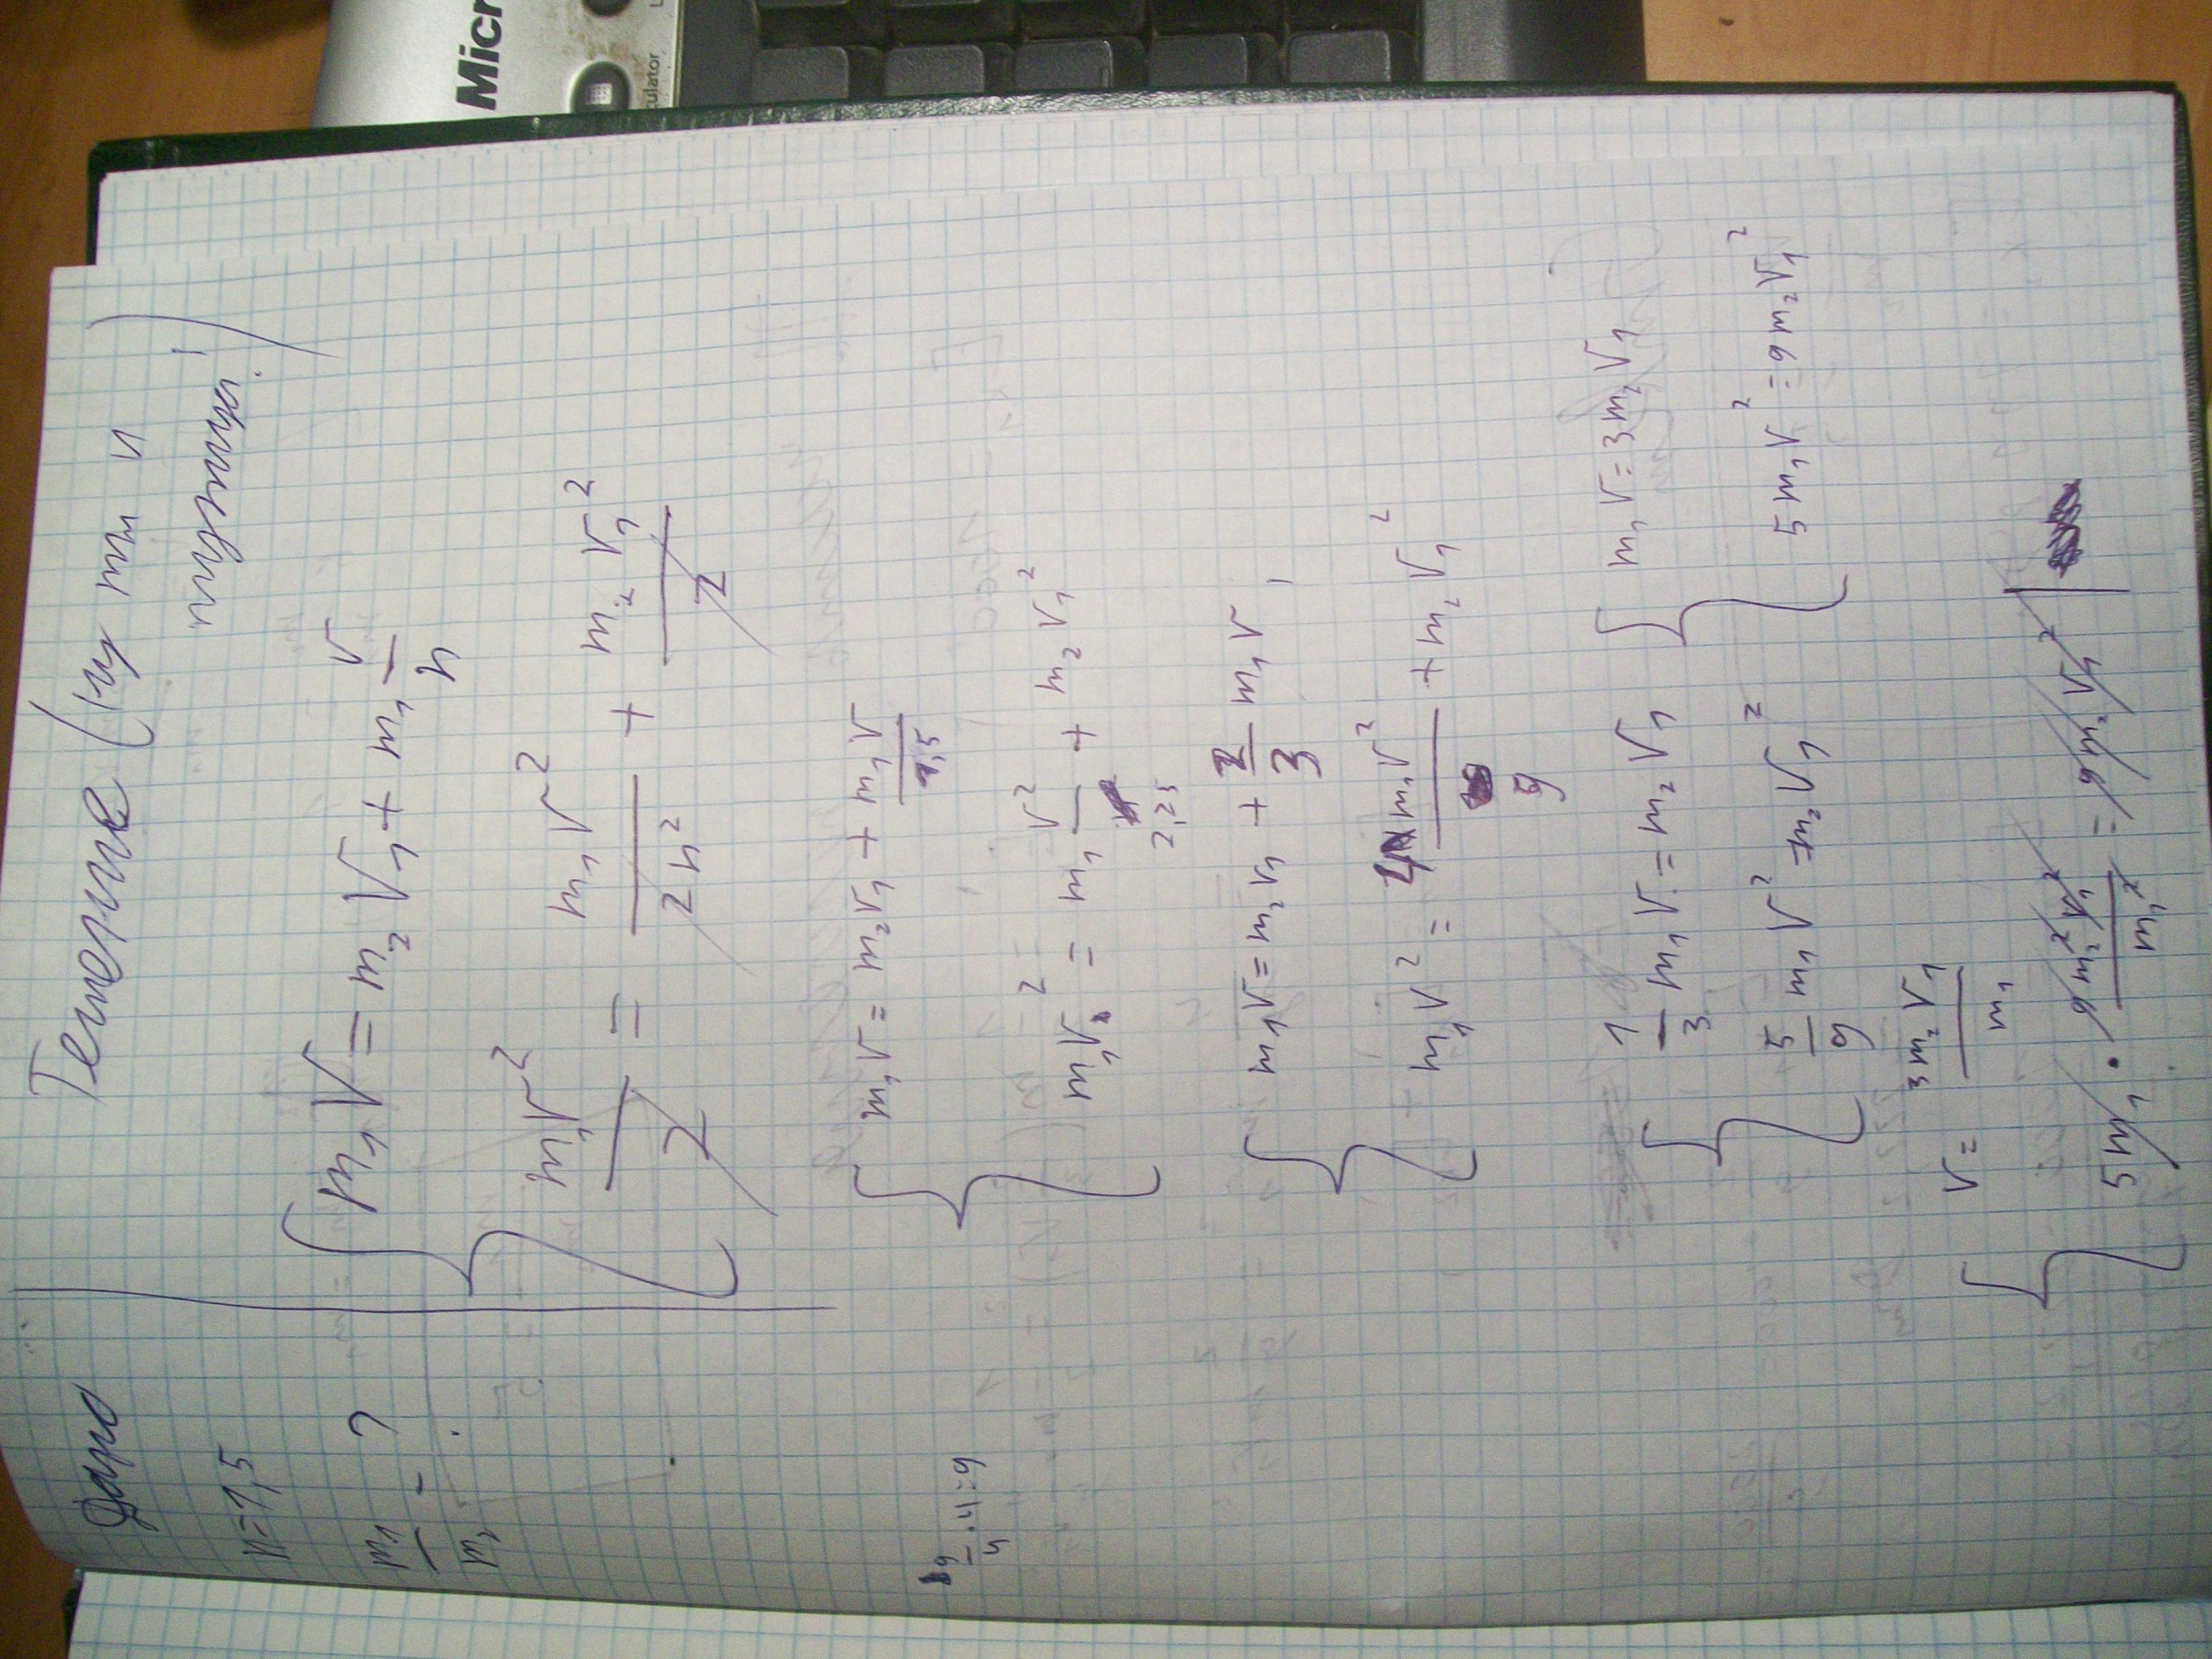 Micr
culator
Дано
n=1,5
m₁/m₂ - ?
{ m₁V = m₂V₁ + m₁ V/n
m₁V²/2 = m₁V²/2n² + m₂V₁²/2
{ m₁V = m₂V₁ + m₁V/1,5
m₁V² = m₁ V²/2,25 + m₂V₁²
9/4 · 4 = 9
{ m₁V = m₂V₁ + 2/3 m₁V
m₁V² = 4m₁V²/9 + m₂V₁²
{ 1/3 m₁V = m₂V₁ { m₁V = 3m₂V₁
5/9 m₁V² = m₂V₁² 5m₁V² = 9m₂V₁²
{ V = 3m₂V₁/m₁
5m₁ · 9m₂²V₁²/m₁² = 9m₂V₁²